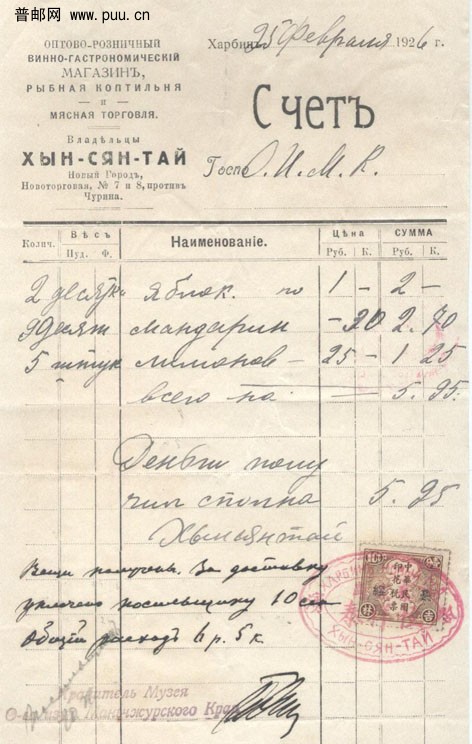 普邮网 www.puu.cn
ОПТОВО-РОЗНИЧНЫЙ
ВИННО-ГАСТРОНОМИЧЕСКІЙ
МАГАЗИНЪ,
РЫБНАЯ КОПТИЛЬНЯ
и
МЯСНАЯ ТОРГОВЛЯ.
Владѣльцы
ХЫН-СЯН-ТАЙ
Новый Городъ,
Новоторговая, № 7 и 8, противъ
Чурина.
Харбинъ 25 Февраля 1926 г.
Счетъ
Госпо О.И.М.К.
Колич. Вѣсъ Пуд. Ф. Наименованіе. Цѣна Руб. К. СУММА Руб. К.
2 десятка яблок. по 1 - 2 -
9 десят мандарин - 30 2. 70
5 штук лимонов - 25 - 1 25
всего на: 5. 95.
Деньги полу
чил сполна 5. 95
Хынсянтай
Вещи получены. За доставку
уплочено носильщику 10 сен
Общий расход 6 р. 5 к.
中華民國
印花稅票
ХЫН-СЯН-ТАЙ
Хранитель Музея
Маньчжурского Края